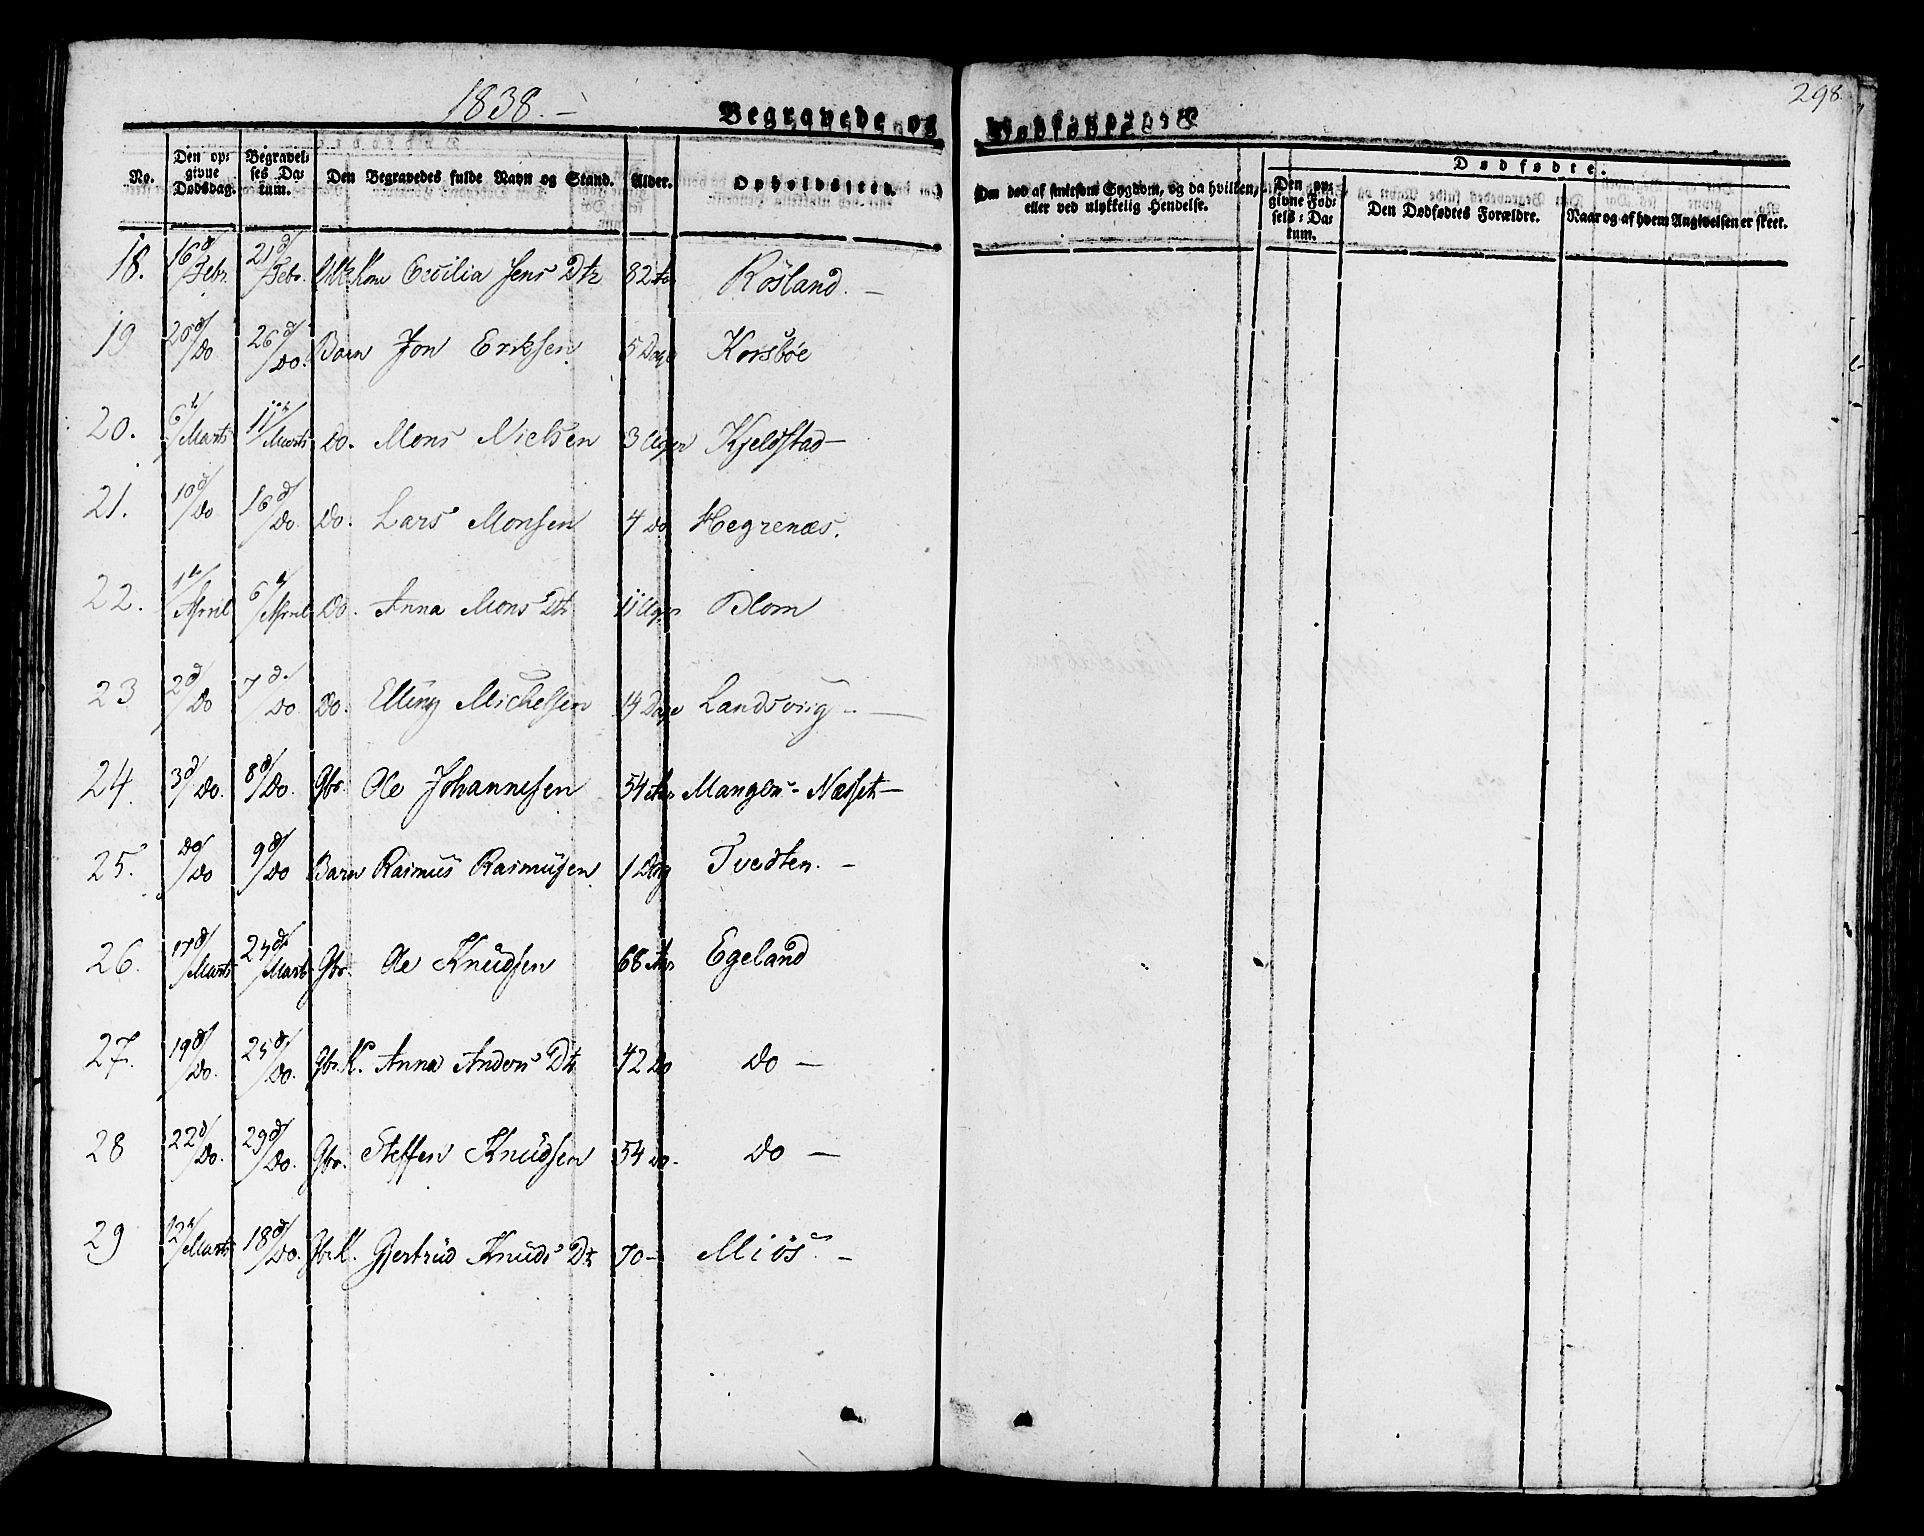 298.
1838. –
Begravede og Dødfødte
No. Den opgivne Dødsdag. Begravelses Datum. Den Begravedes fulde Navn og Stand. Alder. Opholdssted. Den død af smitsom Sygdom, og da hvilken, eller ved ulykkelig Hendelse. Dødfødte. Den opgivne Fødsels-Datum. Den Dødfødtes Forældre. Naar og af hvem Angivelsen er skeet.
18. 16d/Febr. 21d/Febr. Cecilia Jens Dtr 82 Røsland. –
19 20d/Do 26d/Do. Barn Jon Eriksen 5 Dage Korsbøe
20. 6t/Marts 11t/Marts Do. Mons Nielsen 3 Uger Kjeldstad –
21. 10d/Do 16d/Do. Do. Lars Monsen 4 Do Hegrenæs.
22. 1t/April 6t/April Do. Anna Mons Dtr 11 Uger Blom
23 2d/Do 7d/Do Do. Elling Michelsen 14 Dage Landsviig –
24. 3d/Do. 8d/Do. Gbr. Ole Johannesen 54 Aar Manger-Næsset –
25. Do/Do 9d/Do Barn Rasmus Rasmusen 1 Dag Tvedten. –
26. 17d/Marts 24d/Marts Gbr. Ole Knudsen 68 Aar Egeland
27. 19d/Do. 25d/Do. Gbr.K. Anna Anders Dtr 42 Do Do –
28 22d/Do. 29d/Do. Gbr. Steffen Knudsen 54 Do. Do –
29 12t/Marts 18d/Do. Gbr.K. Gjertrud Knuds Dtr 70 – Miøs. –